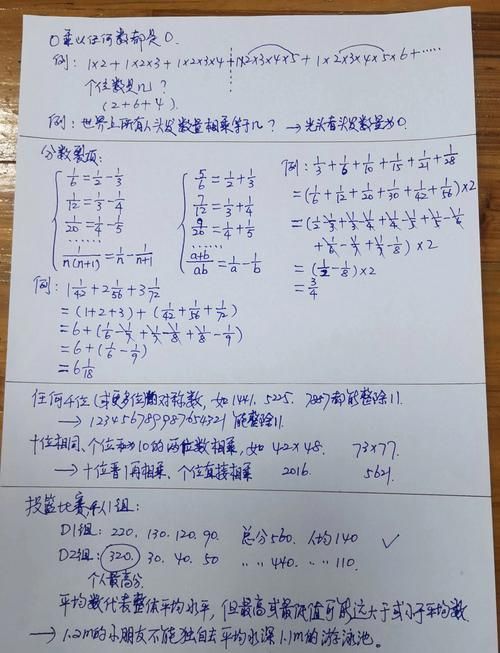 0乘以任何数都是0.
例: 1×2+1×2×3+1×2×3×4+1×2×3×4×5+1×2×3×4×5×6+……
个位数是几?
(2+6+4).
例: 世界上所有人头发数量相乘等于几? → 光头者头发数量为0.
分数裂项:
1/6=1/2-1/3
1/12=1/3-1/4
1/20=1/4-1/5
……
1/n(n+1)=1/n-1/n+1
5/6=1/2+1/3
7/12=1/3+1/4
9/20=1/4+1/5
……
a+b/ab=1/a-1/b
例: 1/3+1/6+1/10+1/15+1/21+1/28
=(1/6+1/12+1/20+1/30+1/42+1/56)×2
=(1/2-1/3+1/3-1/4+1/4-1/5+1/5-1/6
+1/6-1/7+1/7-1/8)×2
=(1/2-1/8)×2
=3/4
例: 1 1/42+2 1/56+3 1/72
=(1+2+3)+(1/42+1/56+1/72)
=6+(1/6-1/7+1/7-1/8+1/8-1/9)
=6+(1/6-1/9)
=6 1/18
任何4位(或更多位)的对称数, 如1441, 5225, 7887都能整除11.
→ 123456789987654321 能整除11.
十位相同、个位和为10的两位数相乘, 如 42×48. 73×77.
→ 十位普1再相乘、个位直接相乘 2016. 5621.
投篮比赛, 4人1组:
D1组: 220. 130. 120. 90. 总分560. 人均140 ✓
D2组: 320. 30. 40. 50 〃〃440. 〃〃110.
个人最高分.
平均数代表整体平均水平, 但最高或最低值可能远大于或小于平均数.
→ 1.2m的小朋友不能独自去平均水深1.1m的游泳池。